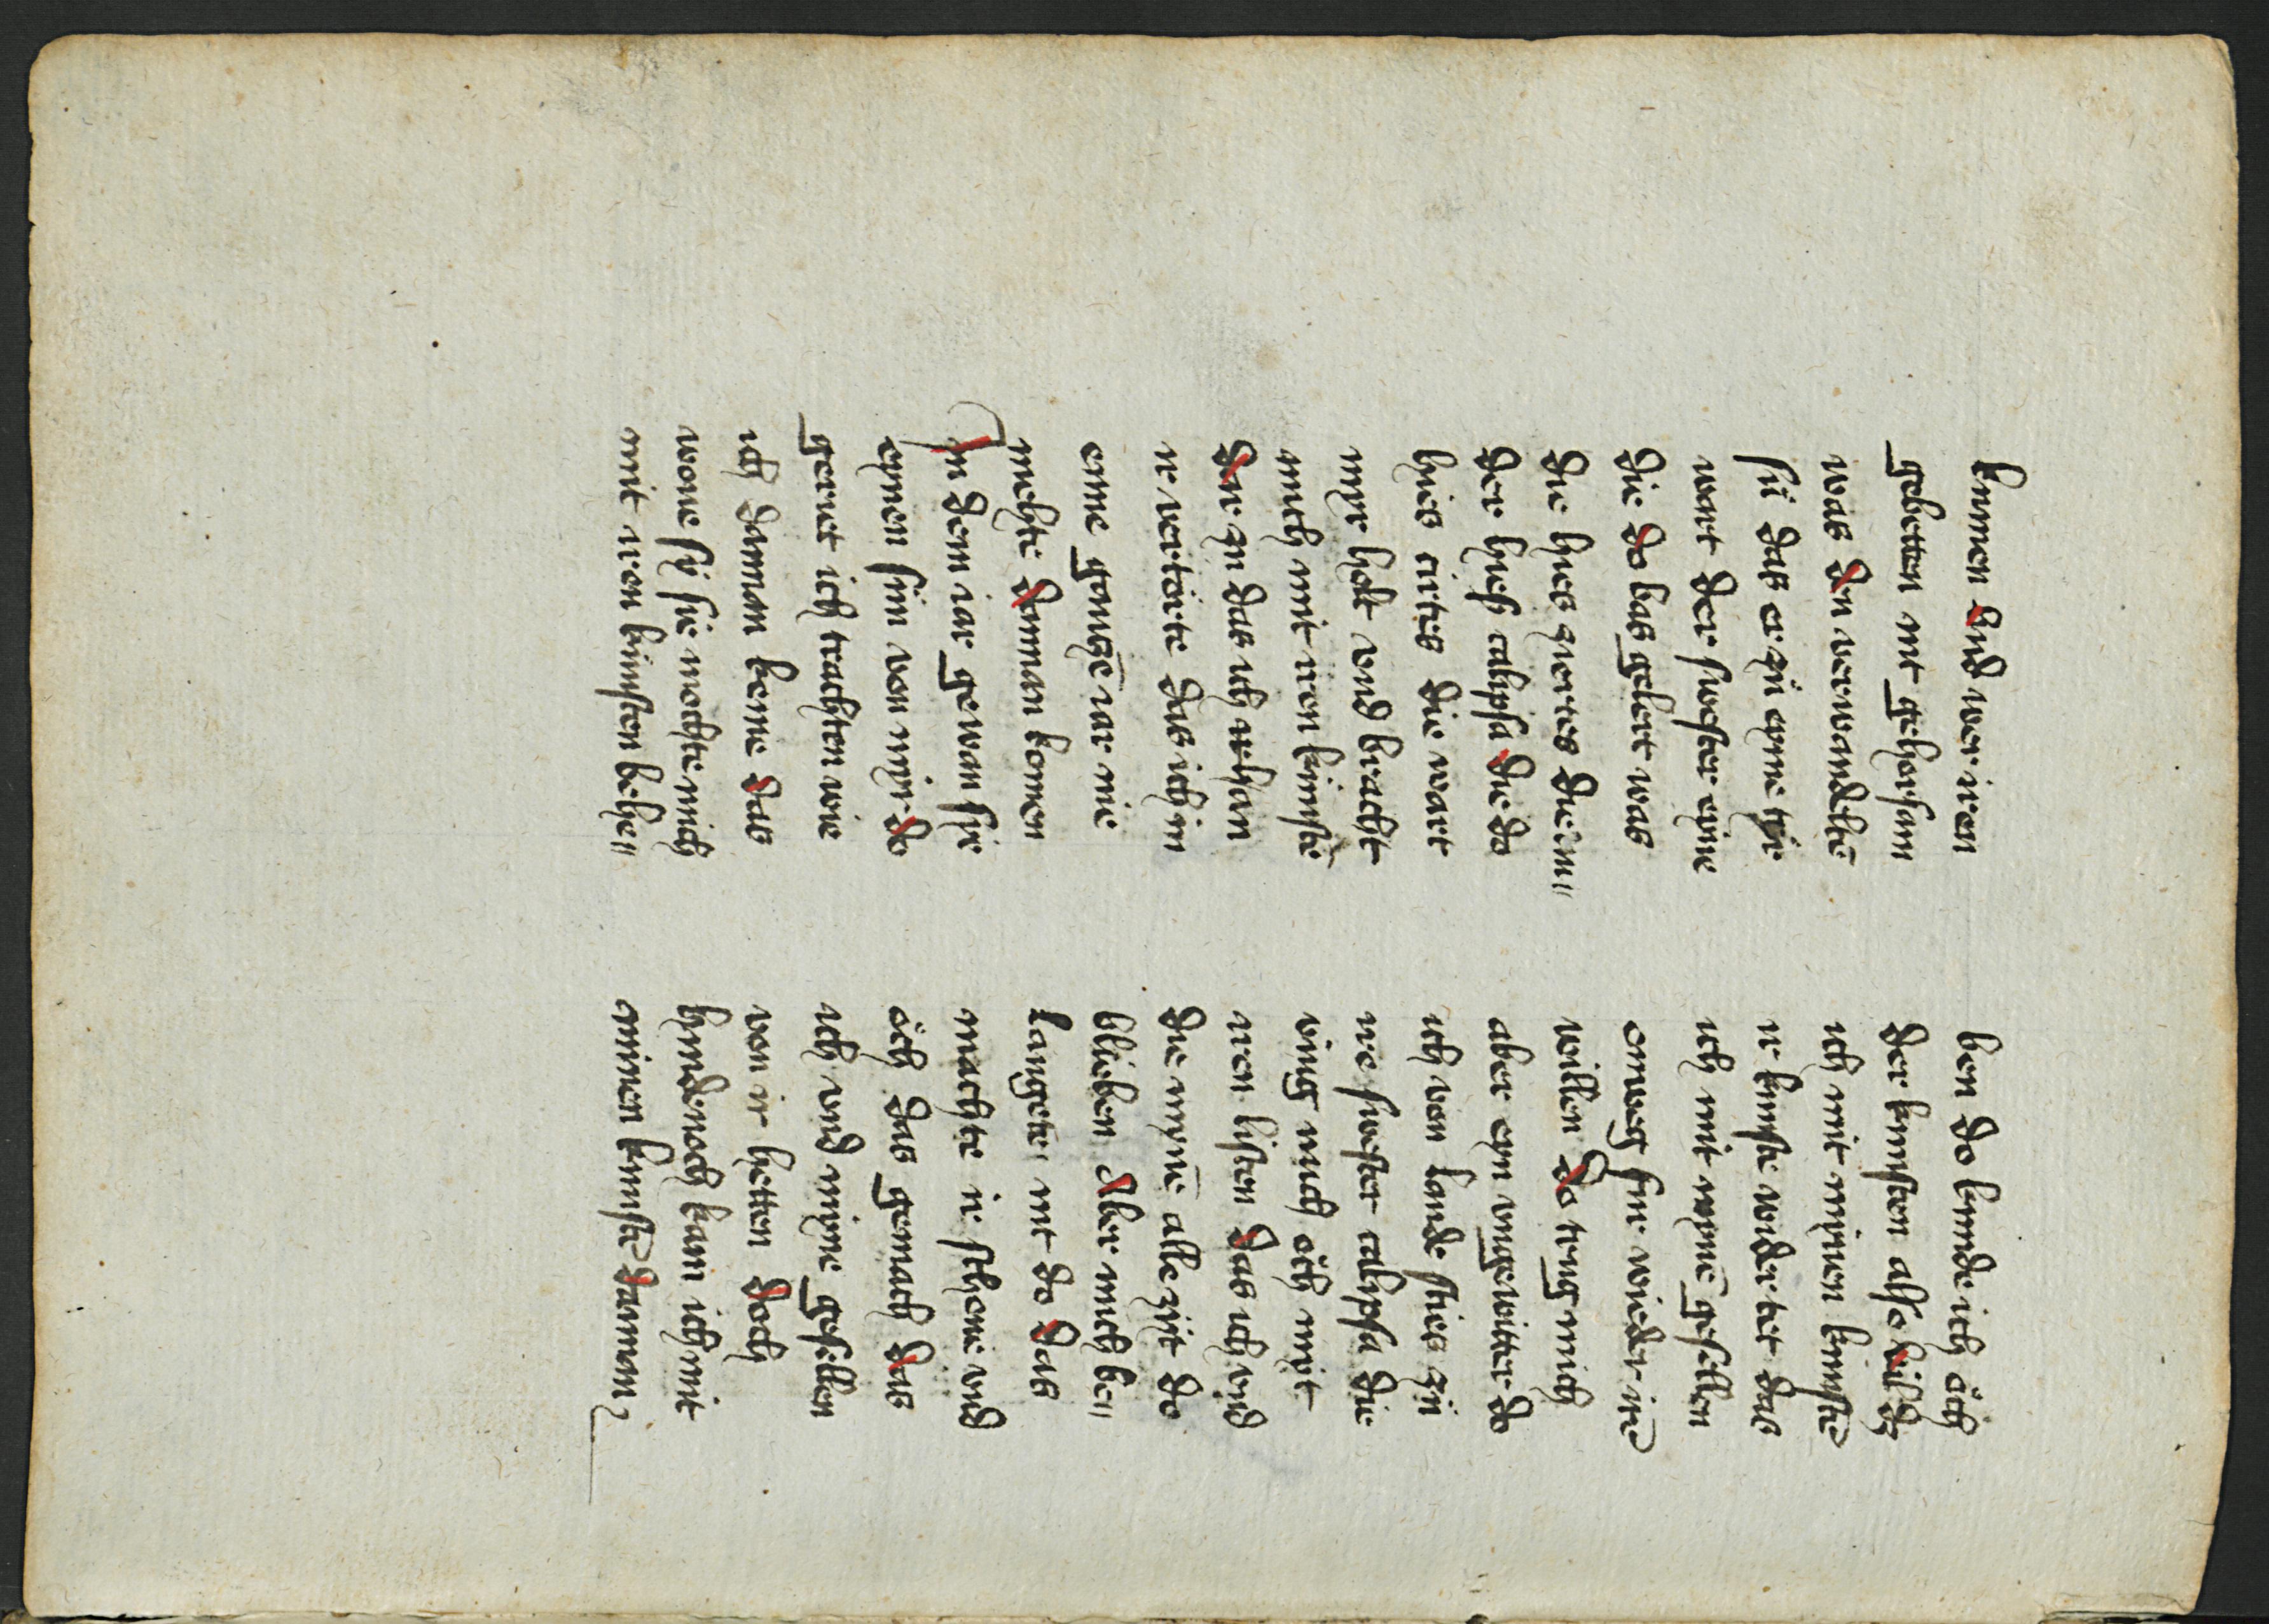 kunnen Vnd wer iren
gebetten nit gehorsam
was den verwandeltē
sü das er zü eyme tyr
wart der swester eyne
die do bas gelert was
die hies zirtes die an„
der hies calypsa die do
hies cirtes die wart
myr holt vnd bracht
mich mit iren künstē
Dar zu das ich irhan
ir vertörte das ich in
eyme gansze iar nie
mehte danman komen
In dem iar gewan sye
eynen sün von myr do
gerret ich trachten wie
ich danman keme das
wone sÿ sie mochte mich
mit iren künsten behe„
ben do kunde ich öch
der kunsten also vilsz
ich mit mynen künstē
ir kunste widertet das
ich mit mynē gesellen
enweg fur wieder irē
willen Do trug mich
aber eyn vngewitter do
ich von lande sties zü
ire swester calypsa die
ving mich öch myt
iren listen das ich vnd
die mynē alle zijt do
blieben Aber mich be„
langete nit do das
machte ir schone vnd
öch das gemach das
ich vnd myne gesellen
von ir hetten doch
hyndenoch kam ich mit
minen kunstē danman